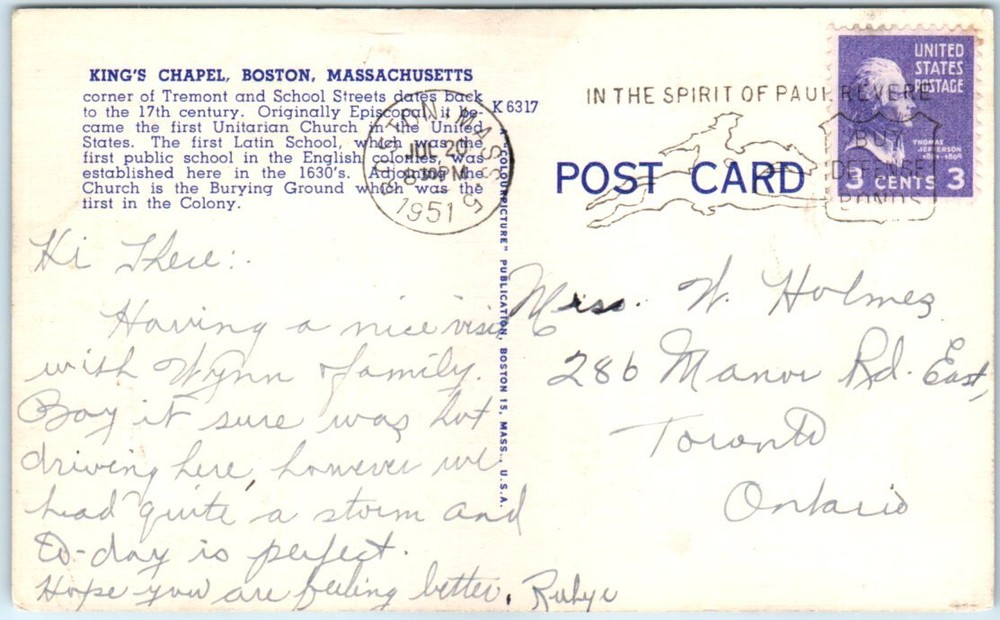 KING'S CHAPEL, BOSTON, MASSACHUSETTS
corner of Tremont and School Streets dates back
to the 17th century. Originally Episcopal it be-
came the first Unitarian Church in the United
States. The first Latin School, which was the
first public school in the English colonies, was
established here in the 1630's. Adjoining the
Church is the Burying Ground which was the
first in the Colony.
K 6317
BOSTON, MASS.
JUL 20
8 30 PM
1951
5
IN THE SPIRIT OF PAUL REVERE
BUY
DEFENSE
BONDS
UNITED
STATES
POSTAGE
THOMAS
JEFFERSON
1801-1809
3 CENTS 3
POST CARD
"COLOURPICTURE" PUBLICATION, BOSTON 15, MASS., U.S.A.
Hi There:.
Having a nice visit
with Wynn family.
Boy it sure was hot
driving here, however we
had quite a storm and
to-day is perfect.
Hope you are feeling better.
Miss. W. Holmes
286 Manor Rd. East,
Toronto
Ontario